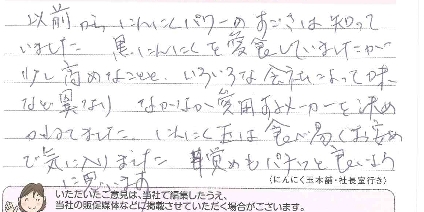 以前からにんにくパワーのすごさは知って
いました 黒にんにくを愛食していましたが
少し高めなことと、いろいろな会社によって味
など異なり なかなか愛用するメーカーを決め
かねてました。にんにく玉は食べ易くお安め
で気に入りました 目覚めもパチッと良いよう
に思います
(にんにく玉本舗・社長宛行き)
いただいたご意見は、当社で編集したうえ、
当社の販促媒体などに掲載させていただく場合がございます。